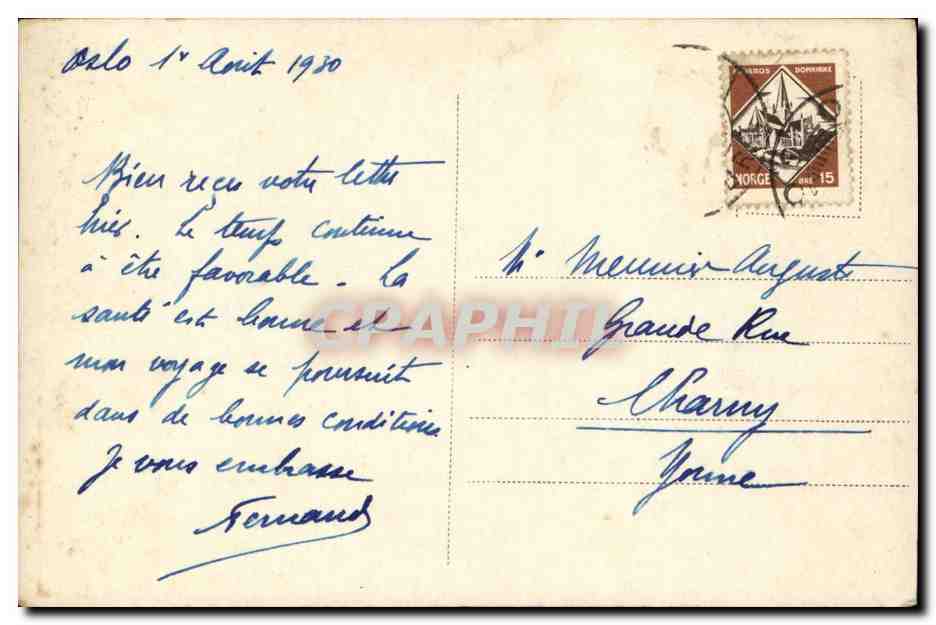 Oslo 1er Août 1930
Bien reçu votre lettre
hier. Le temps continue
à être favorable. La
santé est bonne et
mon voyage se poursuit
dans de bonnes conditions
Je vous embrasse
Fernand
NIDAROS DOMKIRKE
NORGE ØRE 15
Mr Meunier Auguste
Grande Rue
Charny
Yonne
CRAPHIL